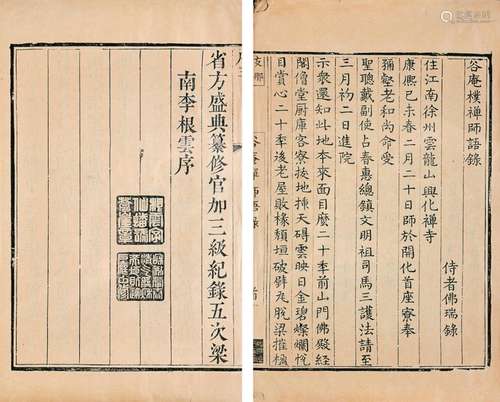 谷庵樸禪師語錄
侍者佛瑞錄
住江南徐州雲龍山興化禪寺
康熙己未春二月二十日師於開化首座寮奉
壑老和尚命受
聖聰戴副使占春惠總鎮文明祖司馬三護法請至
三月初二日進院
示衆還知此地本來面目麼二十季前山門佛殿經
閣僧堂厨庫客寮挨地揷天碍雲映日金碧燦爛悅
目賞心二十季後老屋敗椽頹垣破壁瓦脫梁摧
谷庵禪師語錄
省方盛典纂修官加三級紀錄五次梁
南李根雲序